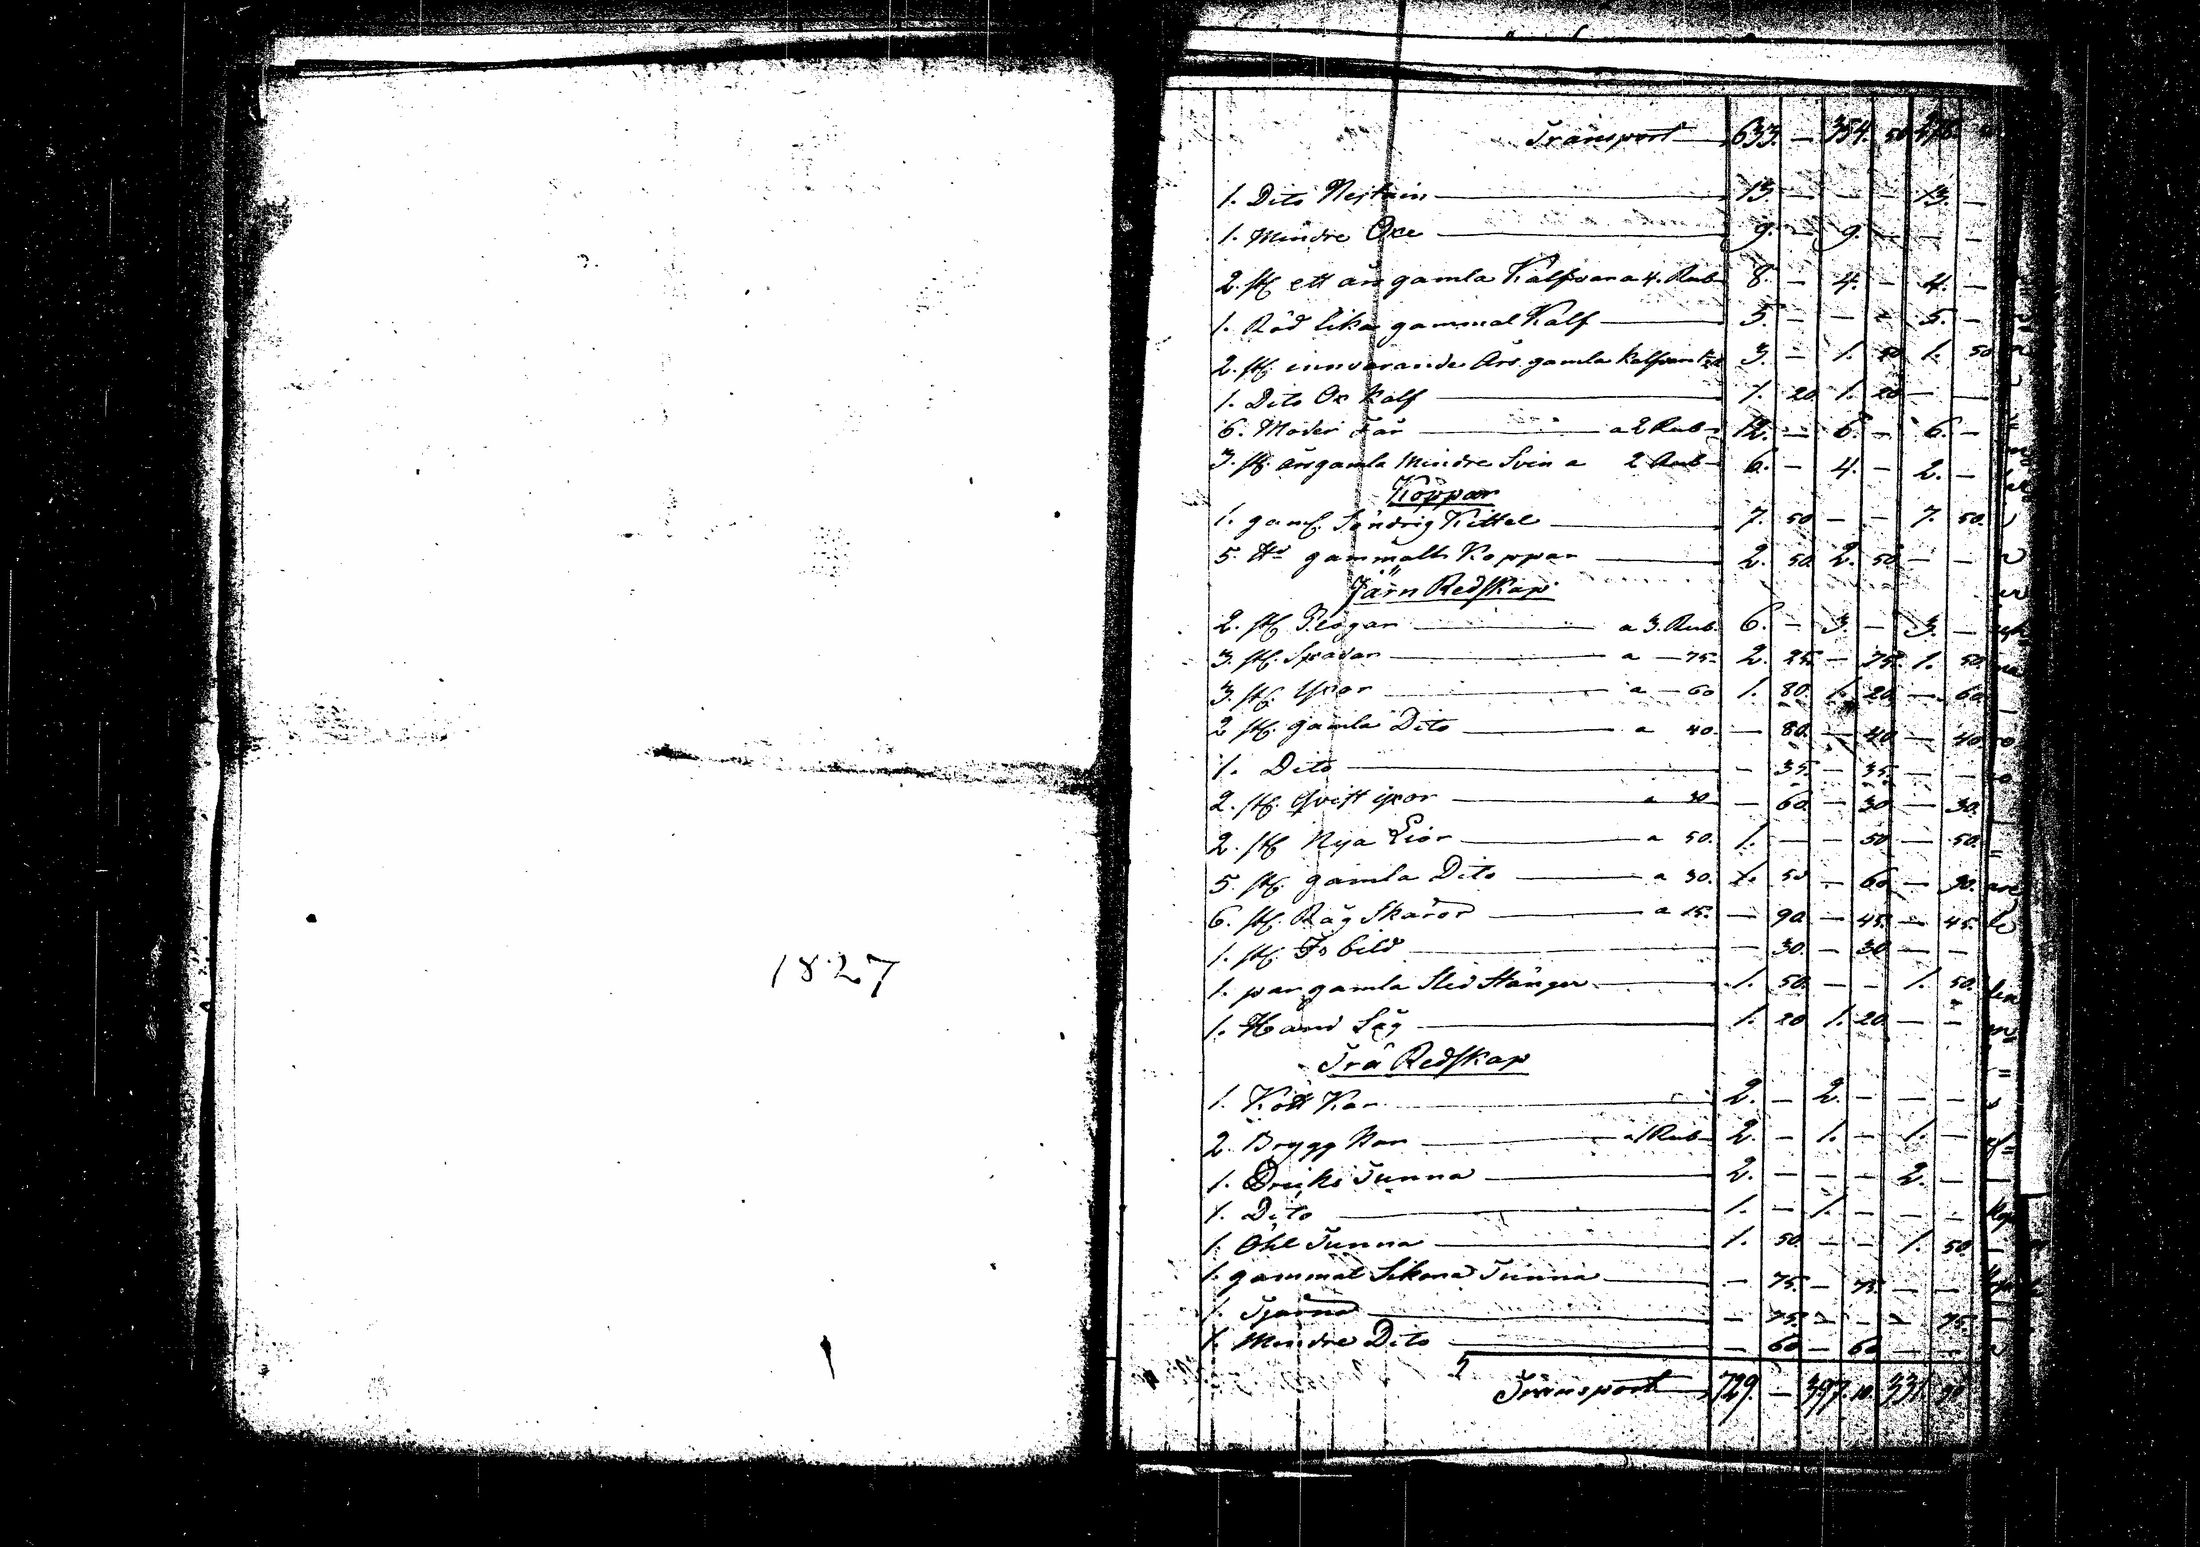 1827
Transport 633. — 354. 50 278. 50
1. Dito 13. — — — 13. —
1. Mindre Oxe 9. — 9. — — —
2. st. ett års gamla Kalfvar a 4. Rub 8. — 4. — 4. —
1. Röd lika gammal Kalf 5. — — — 5. —
2. st. innvarande Års gamla kalfvar 3. — 1. 50 1. 50
1. Dito Ox Kalf 1. 20 1. 20 — —
6. Moder Får a 2 Rub 12. — 6. — 6. —
3. st. årsgamla Mindre Svin a 2 Rub 6. — 4. — 2. —
Koppar
1. gaml. Söndrig Kittel 7. 50 — — 7. 50.
5. gammalt Koppar 2. 50 2. 50 — —
Järn Redskap
2. st. Plogar a 3. Rub. 6. — 3. — 3. —
3. st. Spadar a — 75. 2. 25. — 75. 1. 50.
3. st. Yxor a — 60 1. 80. 1. 20 — 60
2 st. gamla Dito a 40. — 80. — 40 — 40.
1. Dito — 35. — 35. — —
2. st. Qvist yxor a 30 — 60. — 30 — 30.
2. st. Nya Lior a 50. 1. — — 50 — 50.
5. st. gamla Dito a 30. 1. 50 — 60 — 90.
6. st. Råg Skäror a 15. — 90. — 45. — 45.
1. st. Is bild — 30. — 30 — —
1. par gamla Sled Stänger 1. 50. — — 1. 50.
1. Hand Såg 1. 20 1. 20 — —
Trä Redskap
1. Kött Kar 2. — 2. — — —
2. Brygg Kar a 1 Rub 2. — 1. — 1. —
1. Dricks Tunna 2. — — — 2. —
1. Dito 1. — 1. — — —
1. Öhl Tunna 1. 50. — — 1. 50.
1. gammal Tunna — 75. — 75. — —
1. Tjärna — 75. — — — 75.
1. Mindre Dito — 60 — 60 — —
Transport 729. — 397. 10. 331. 90